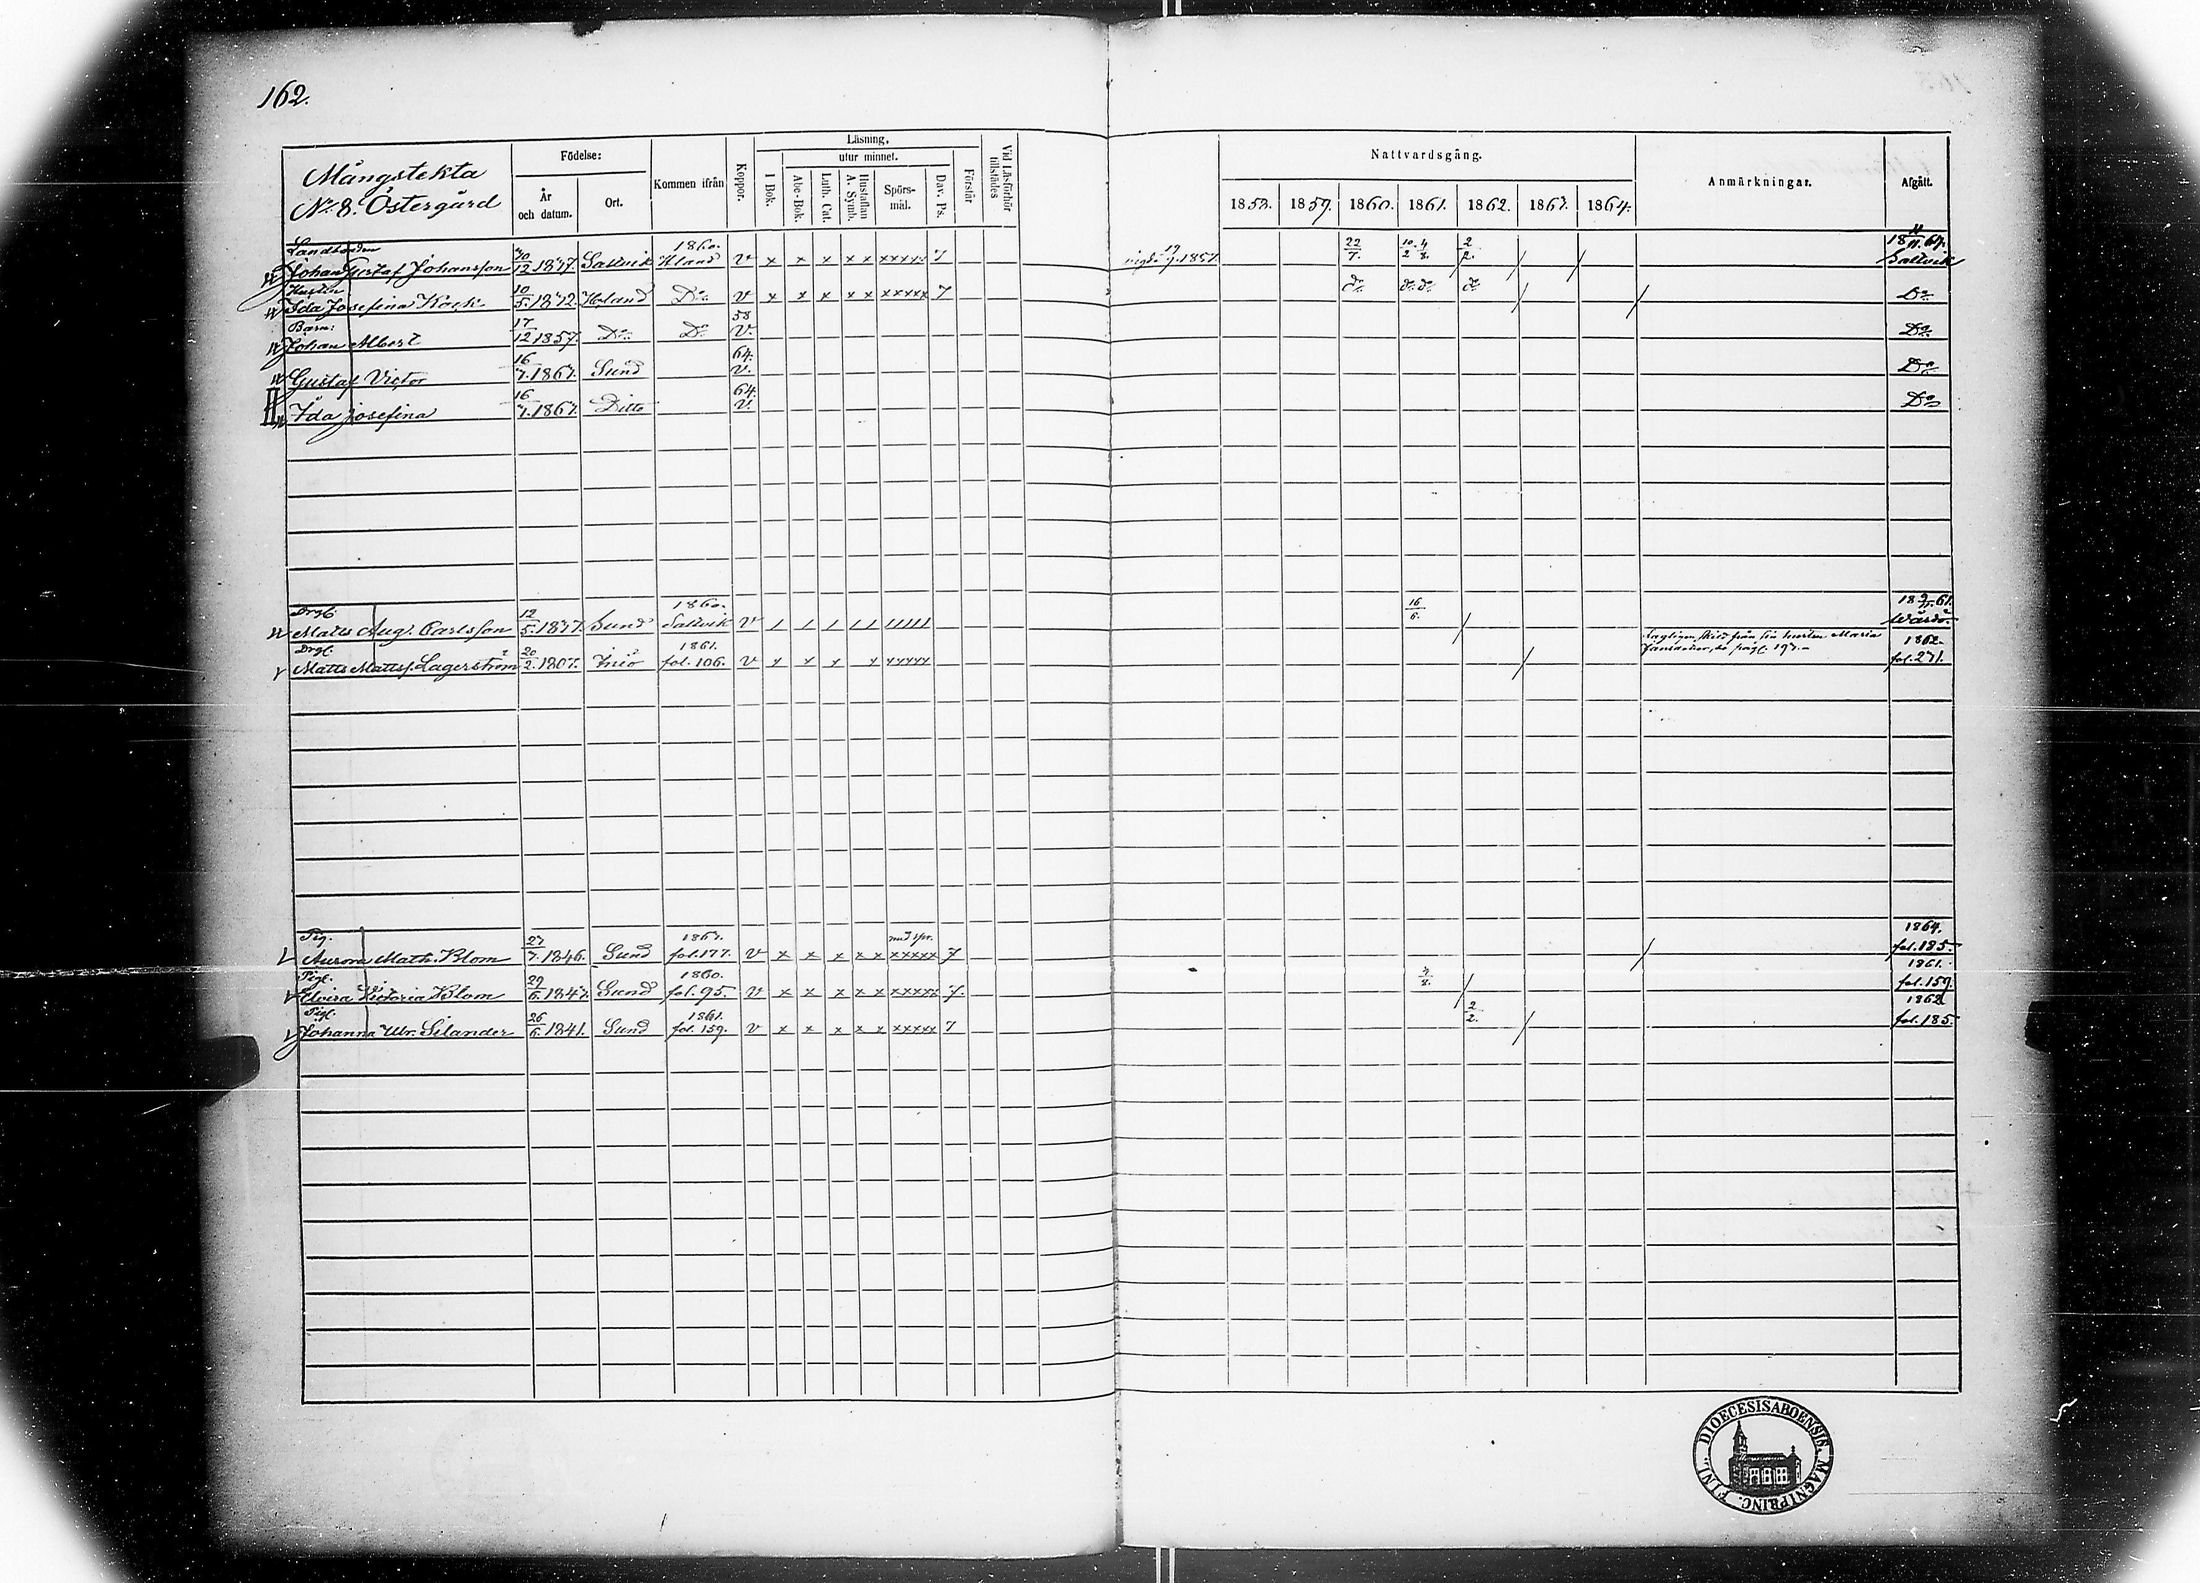 162.
Mångstekta
No 8. Östergård
Födelse:
År och datum.
Ort.
Kommen ifrån
Koppor.
Läsning,
utur minnet.
I Bok.
Abc-Bok.
Luth. Cat.
Hustaflan A. Symb.
Spörsmål.
Dav. Ps.
Förstår
Vid Läsförhör tillstädes
Nattvardsgång.
1858. 1859. 1860. 1861. 1862. 1863. 1864.
Anmärkningar.
Afgått.
Landbonden 1860. 22/7. 10/2 4/8. 2/2. 18 11/11. 64.
Johan Gustaf Johansson 30/12 1837. Saltvik v x x x x x xxxxx 7 Saltvik
Hustru
Ida Josefina Kock 10/5. 1832. Do v x x x x x xxxxx 7 do do do do Do
Barn: 58
Johan Albert 17/12 1857. Do Do v. Do
64.
Gustaf Victor 16/7. 1863. Sund v. Do
64.
Ida Josefina 16/7. 1863. Ditto v. Do
Drgl: 1860. 16/6. 61.
Matts Aug. Carlsson 12/5. 1837. Sund Saltvik v / / / / / ///// Wårdö.
Drgl. 1861. Lagligen skild från sin hustru Maria 1862.
Matts Mattss. Lagerström 20/2. 1807. Iniö fol. 106. v x x x x xxxxx fol. 271.
Pig. 1863. 1864.
Aurora Math. Blom 27/7. 1846. Sund fol. 177. v x x x x x xxxxx 7 fol. 185.
Pigl. 1860. 4/8. 1861.
Elvira Victoria Blom 29/6. 1843. Sund fol. 95. v x x x x x xxxxx 7. fol. 159.
Pigl. 1861. 2/2. 1862
Johanna Ulr. Silander 26/6. 1841. Sund fol. 159. v x x x x x xxxxx 7 fol. 185.
DIOECESIS ABOENSIS. MAGNI PRINC. FINL.